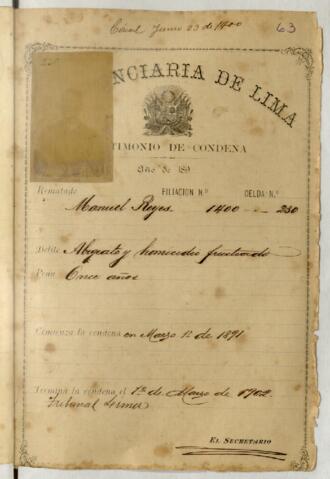 Junio 23 de 1900
63
NCIARIA DE LIMA
TIMONIO DE CONDENA
Año de 189
Rematado FILIACION N.º CELDA N.º
Manuel Reyes. 1400 -- 230
Delito Abigeato y homicidio frustrado
Pena Once años
Comienza la condena en Marzo 1º de 1891
Termina la condena el 1º de Marzo de 1902.
Tribunal
EL SECRETARIO